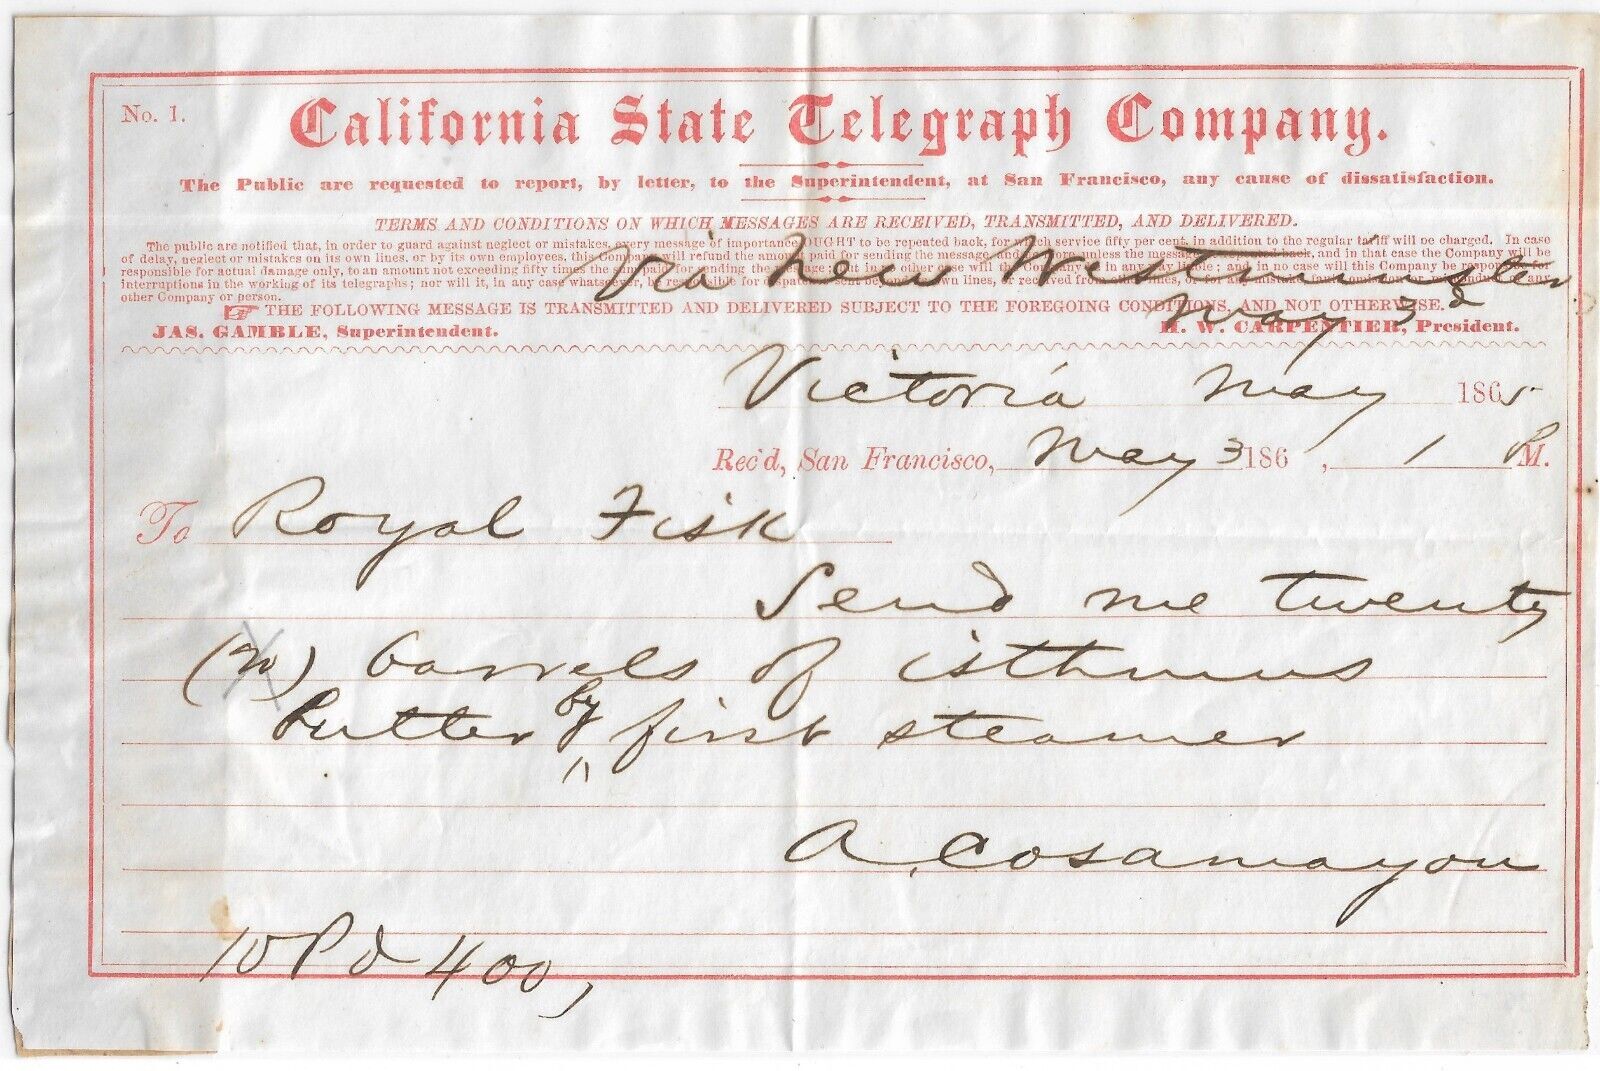 No. 1.
California State Telegraph Company.
The Public are requested to report, by letter, to the Superintendent, at San Francisco, any cause of dissatisfaction.
TERMS AND CONDITIONS ON WHICH MESSAGES ARE RECEIVED, TRANSMITTED, AND DELIVERED.
The public are notified that, in order to guard against neglect or mistakes, every message of importance OUGHT to be repeated back, for which service fifty per cent. in addition to the regular tariff will be charged. In case
of delay, neglect or mistakes on its own lines, or by its own employees, this Company will refund the amount paid for sending the message, and no more, unless the message back, and in that case the Company will be
responsible for actual damage only, to an amount not exceeding fifty times the sum paid for sending the message; but in no other case will this Company be in any way liable; and in no case will this Company be responsible for
interruptions in the working of its telegraphs; nor will it, in any case whatsoever, be responsible for sent beyond own lines, or received from lines, or for any mistake or omission of any
other Company or person.
Via New Westminster
May 3d
☞ THE FOLLOWING MESSAGE IS TRANSMITTED AND DELIVERED SUBJECT TO THE FOREGOING CONDITIONS, AND NOT OTHERWISE.
JAS. GAMBLE, Superintendent. H. W. CARPENTIER, President.
Victoria May 1865
Rec'd, San Francisco, May 3 186 , 1 P M.
To Royal Fisk
Send me twenty
(20) barrels of isthmus
butter by first steamer
A. Cosamayou
10 Pd 400,